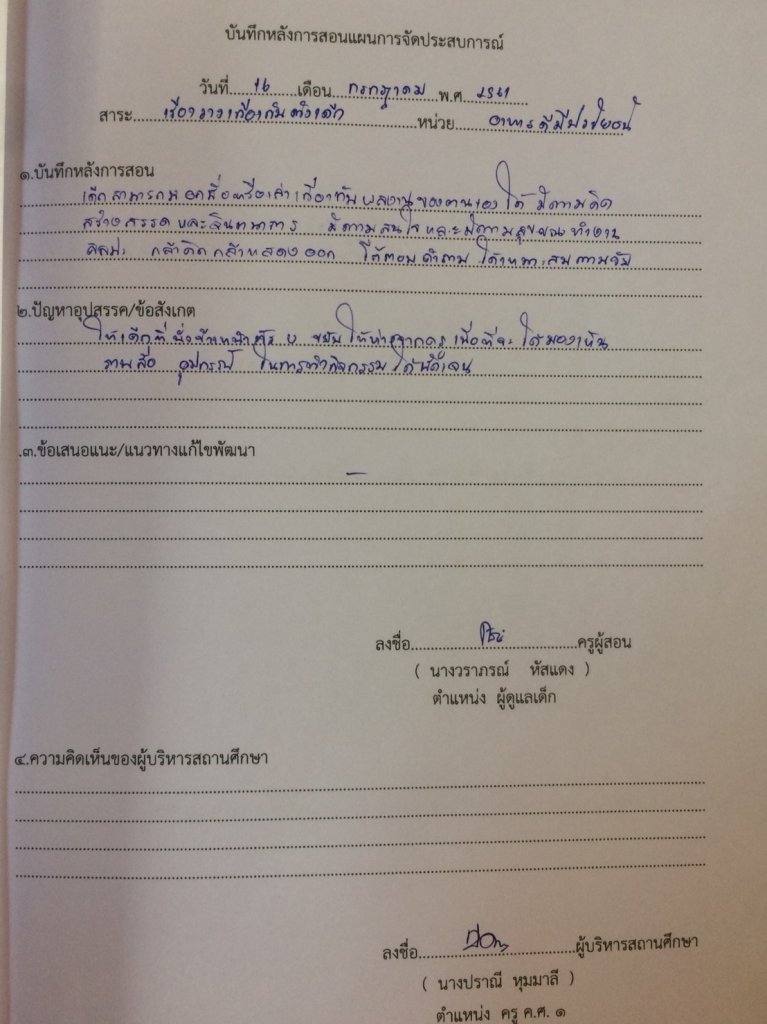 บันทึกหลังการสอนแผนการจัดประสบการณ์
วันที่ 16 เดือน กรกฎาคม พ.ศ 2561
สาระ เรื่องราวเกี่ยวกับตัวเด็ก หน่วย อาหารดีมีประโยชน์
๑.บันทึกหลังการสอน
เด็กสามารถบอกชื่อหรือเล่าเกี่ยวกับผลงานของตนเองได้ มีความคิด
สร้างสรรค์และจินตนาการ มีความสนใจและมีความสุขขณะทำงาน
ศิลปะ กล้าคิดกล้าแสดงออก โต้ตอบคำถามได้เหมาะสมตามวัย
๒.ปัญหาอุปสรรค/ข้อสังเกต
ให้เด็กที่นั่งข้างหน้า ขยับให้ห่างจากครู เพื่อที่จะได้มองเห็น
ภาพสื่อ อุปกรณ์ ในการทำกิจกรรมได้ชัดเจน
.๓.ข้อเสนอแนะ/แนวทางแก้ไขพัฒนา
-
ลงชื่อ ครูผู้สอน
( นางวราภรณ์ หัสแดง )
ตำแหน่ง ผู้ดูแลเด็ก
๔.ความคิดเห็นของผู้บริหารสถานศึกษา
ลงชื่อ ผู้บริหารสถานศึกษา
( นางปราณี หุมมาลี )
ตำแหน่ง ครู ค.ศ. ๑